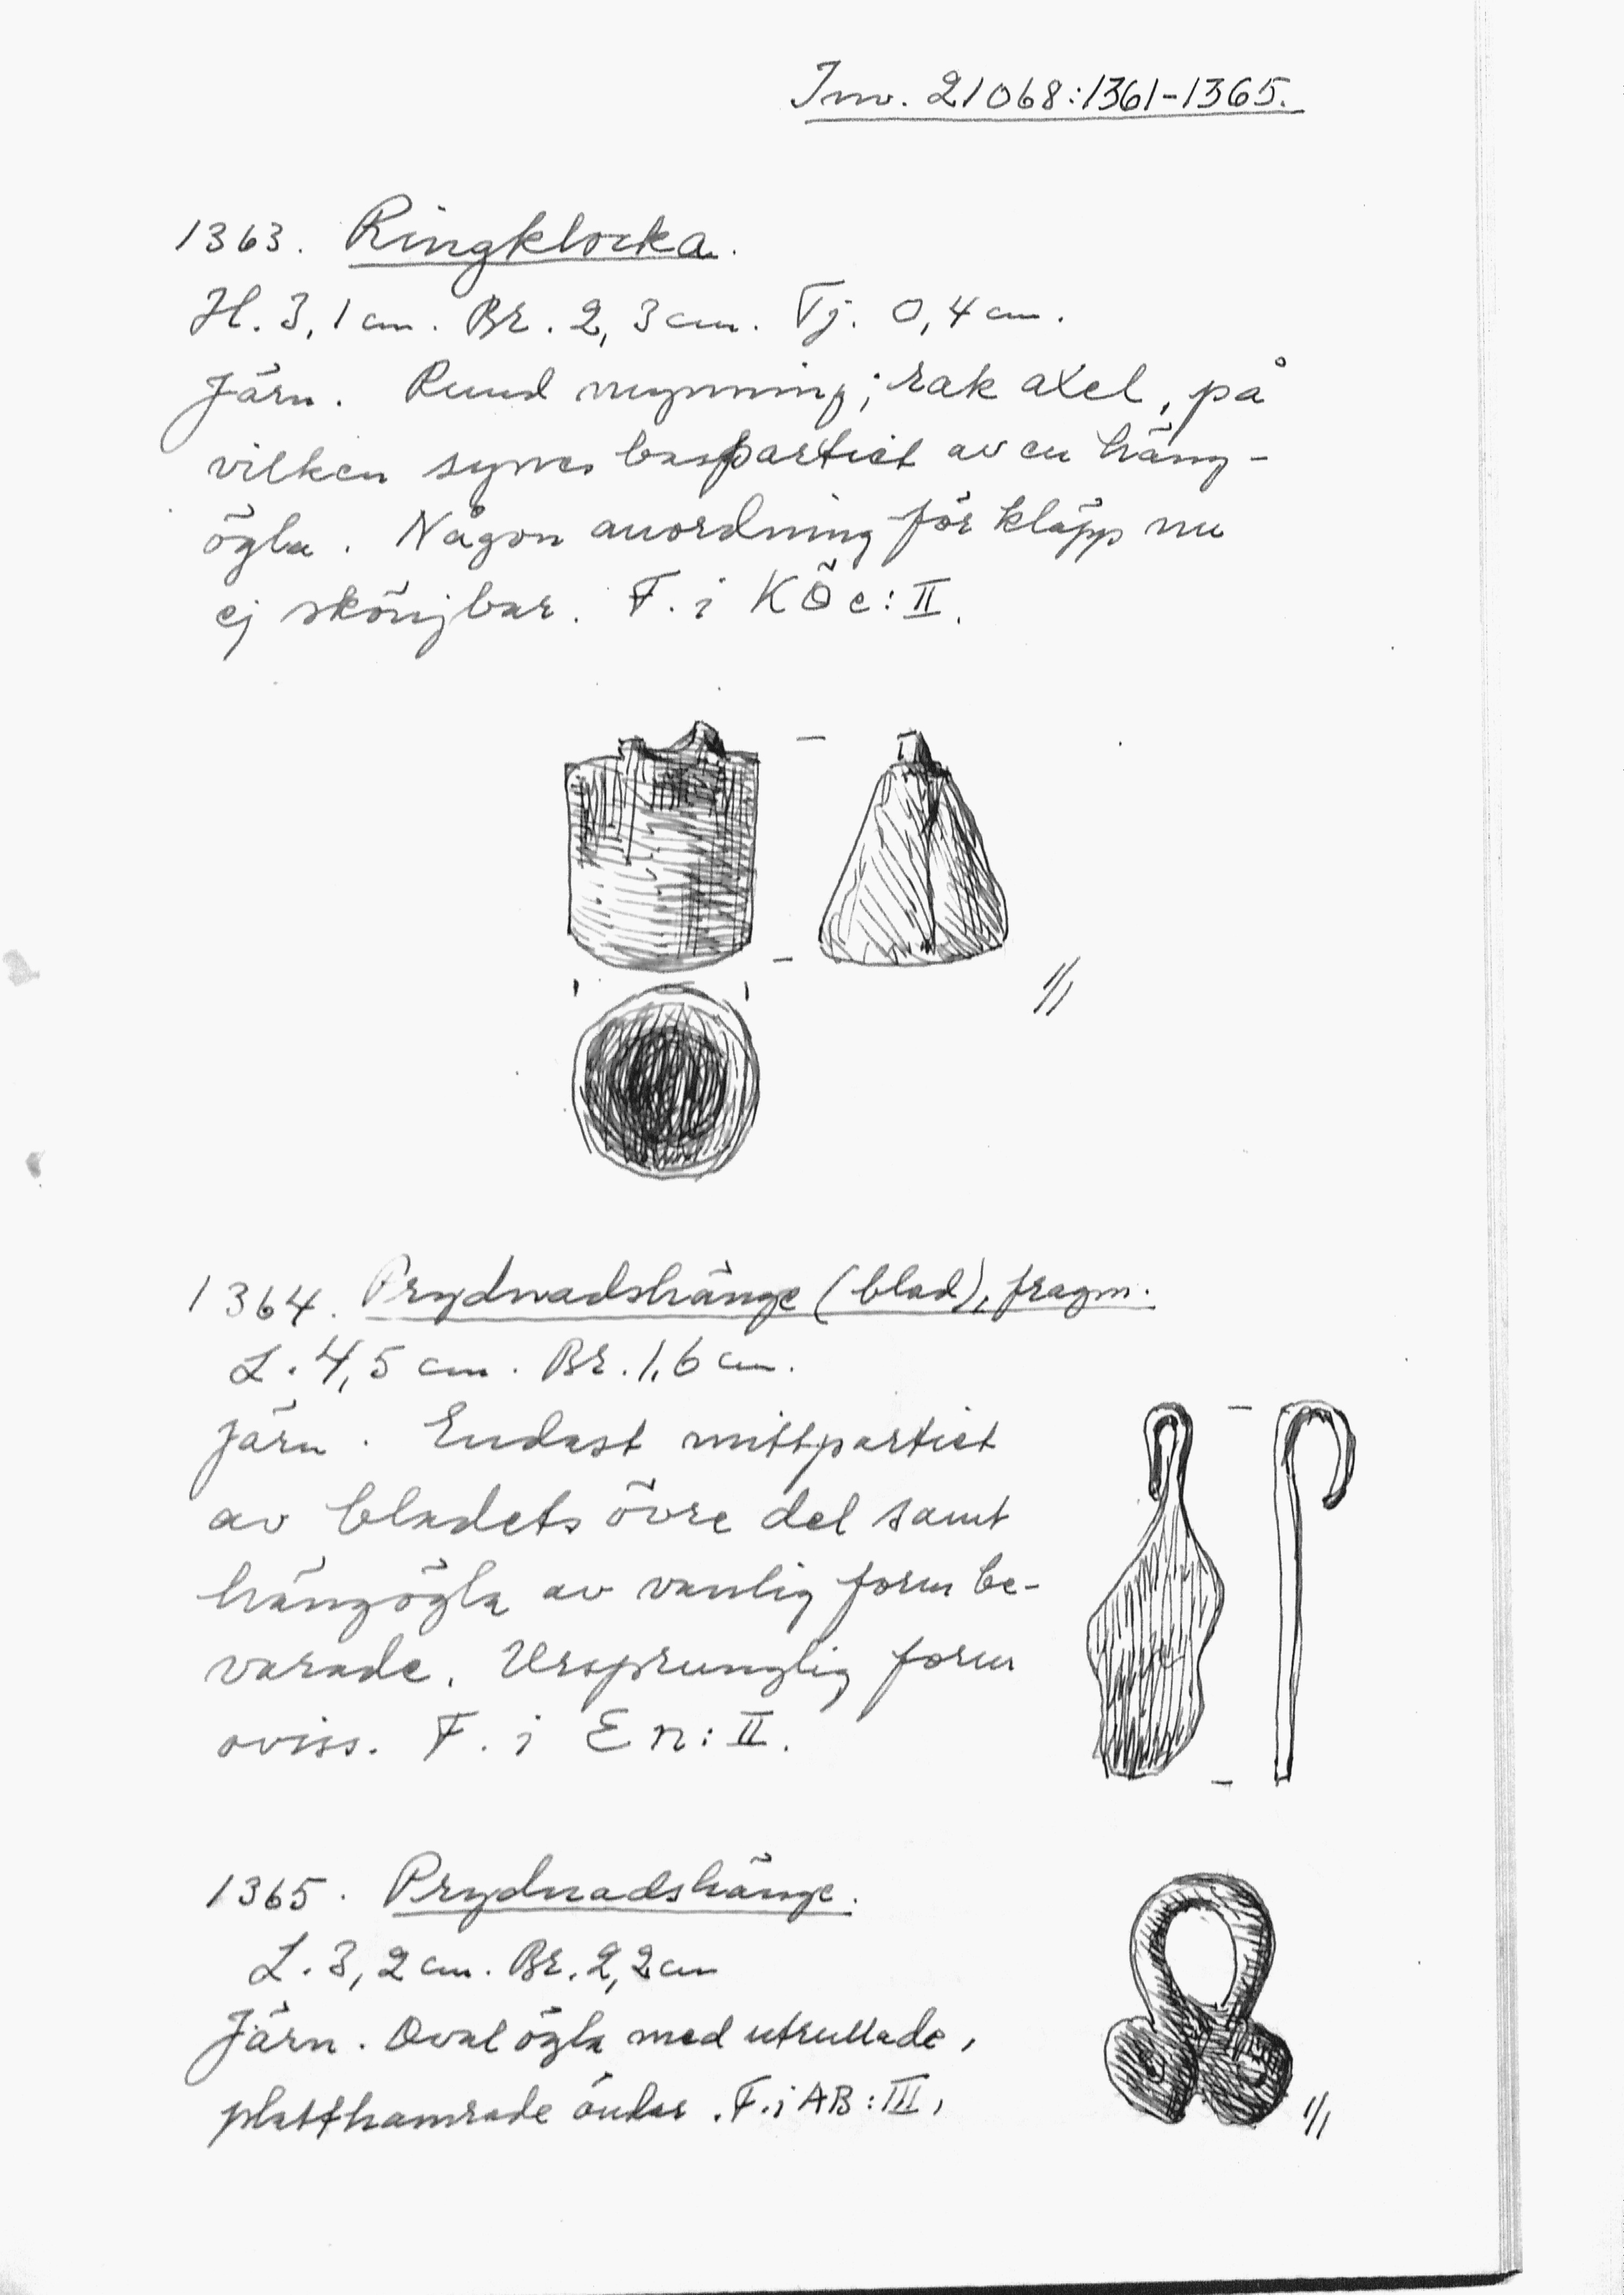 Inv. 21068:1361-1365.
1363. Ringklocka.
H. 3,1 cm. Br. 2,3 cm. Tj. 0,4 cm.
Järn. Rund mynning; rak axel, på
vilken synes baspartiet av en häng-
ögla. Någon anordning för kläpp nu
ej skönjbar. F. i KÖc:II.
1/1
1364. Prydnadshänge (blad), fragm.
L. 4,5 cm. Br. 1,6 cm.
Järn. Endast mittpartiet
av bladets övre del samt
hängögla av vanlig form be-
varade. Ursprunglig form
oviss. F. i En:II.
1365. Prydnadshänge.
L. 3,2 cm. Br. 2,2 cm
Järn. Oval ögla med utrullade,
platthamrade ändar. F. i AB:III,
1/1